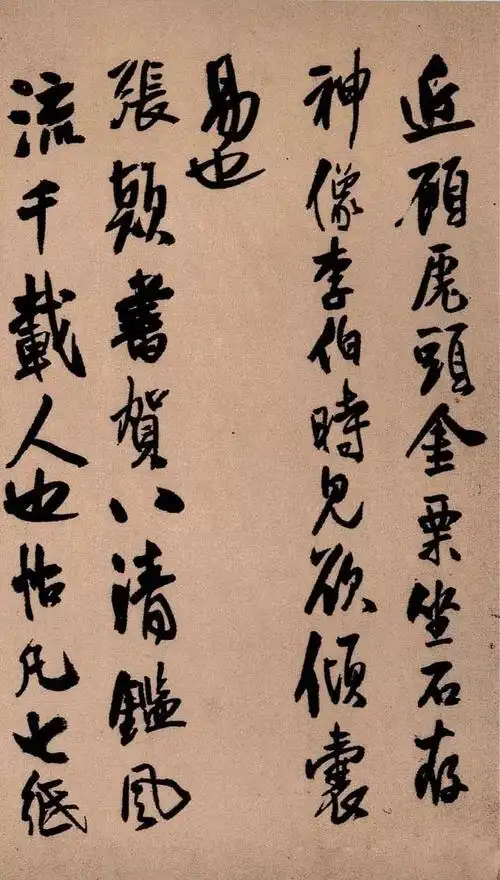 近顾虎頭金粟坐石存
神像李伯時見欲傾囊
易也
張顛書賀八清鑑風
流千載人也帖凡七紙